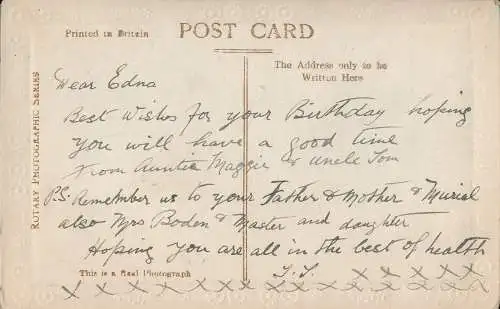 POST CARD
Printed in Britain
The Address only to be
Written Here
ROTARY PHOTOGRAPHIC SERIES
Dear Edna
Best Wishes for your Birthday hoping
you will have a good time
From Auntie Maggie & Uncle Tom
P.S. Remember us to your Father & Mother & Muriel
also Mrs Boden & Master and daughter
Hoping you are all in the best of health
T.T. x x x x x x
This is a Real Photograph
x x x x x x x x x x x x x x x